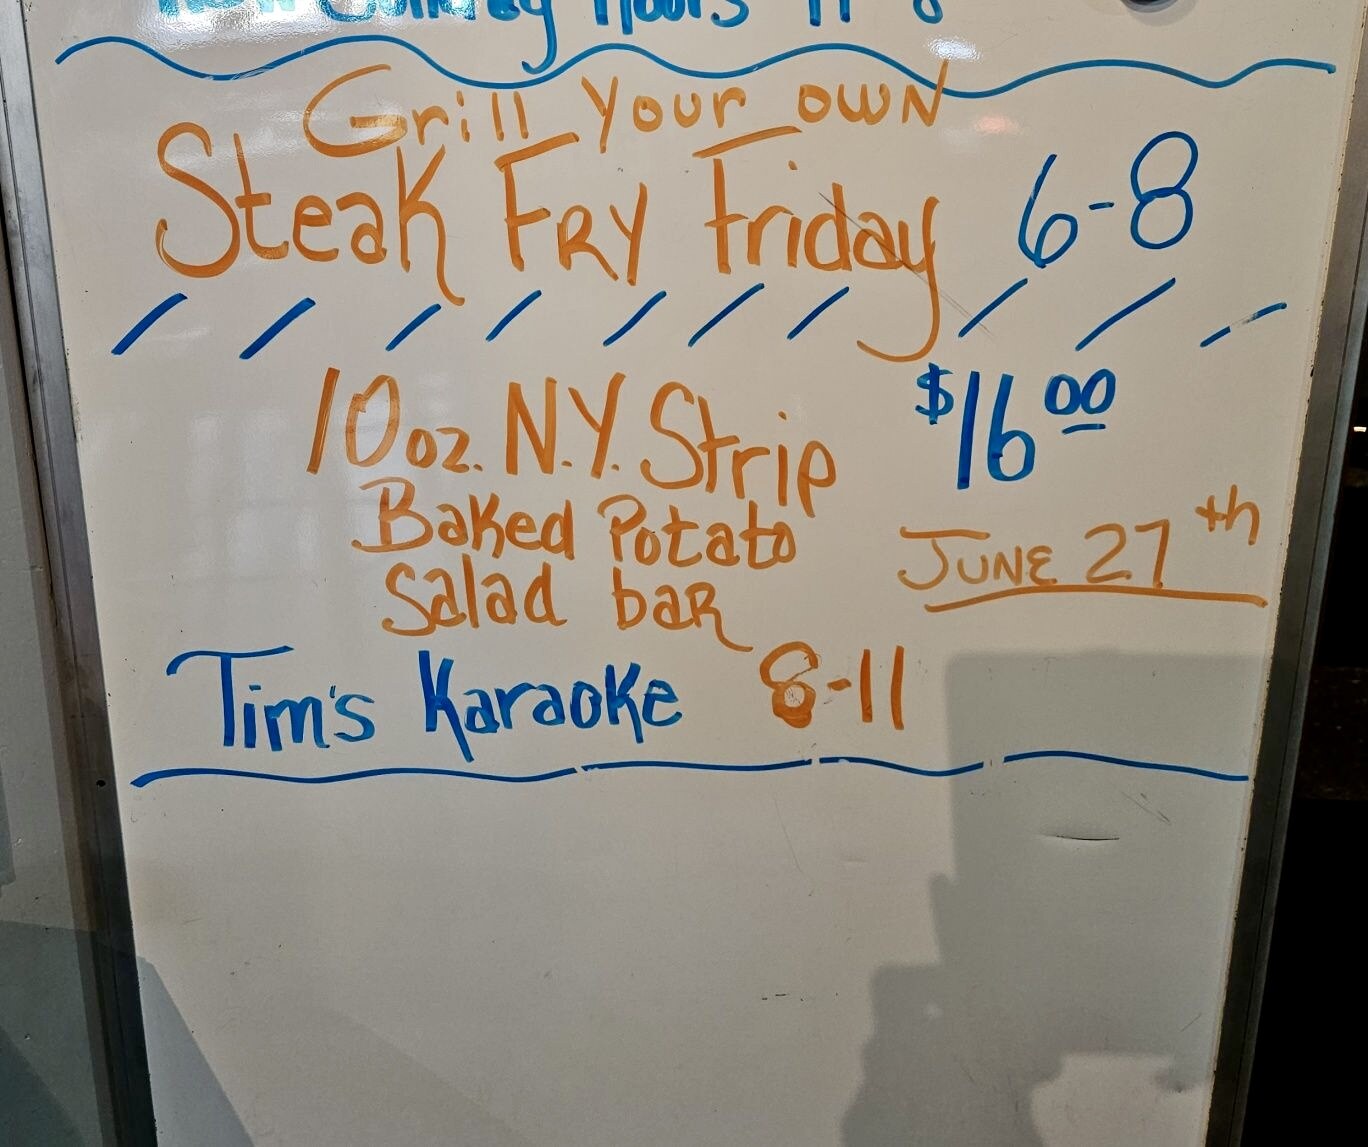 New Sunday Hours 11-8
Grill Your OWN
Steak FRY Friday 6-8
10 oz. N.Y. Strip $16 00
Baked Potato
JUNE 27th
Salad baR
Tim's Karaoke 8-11